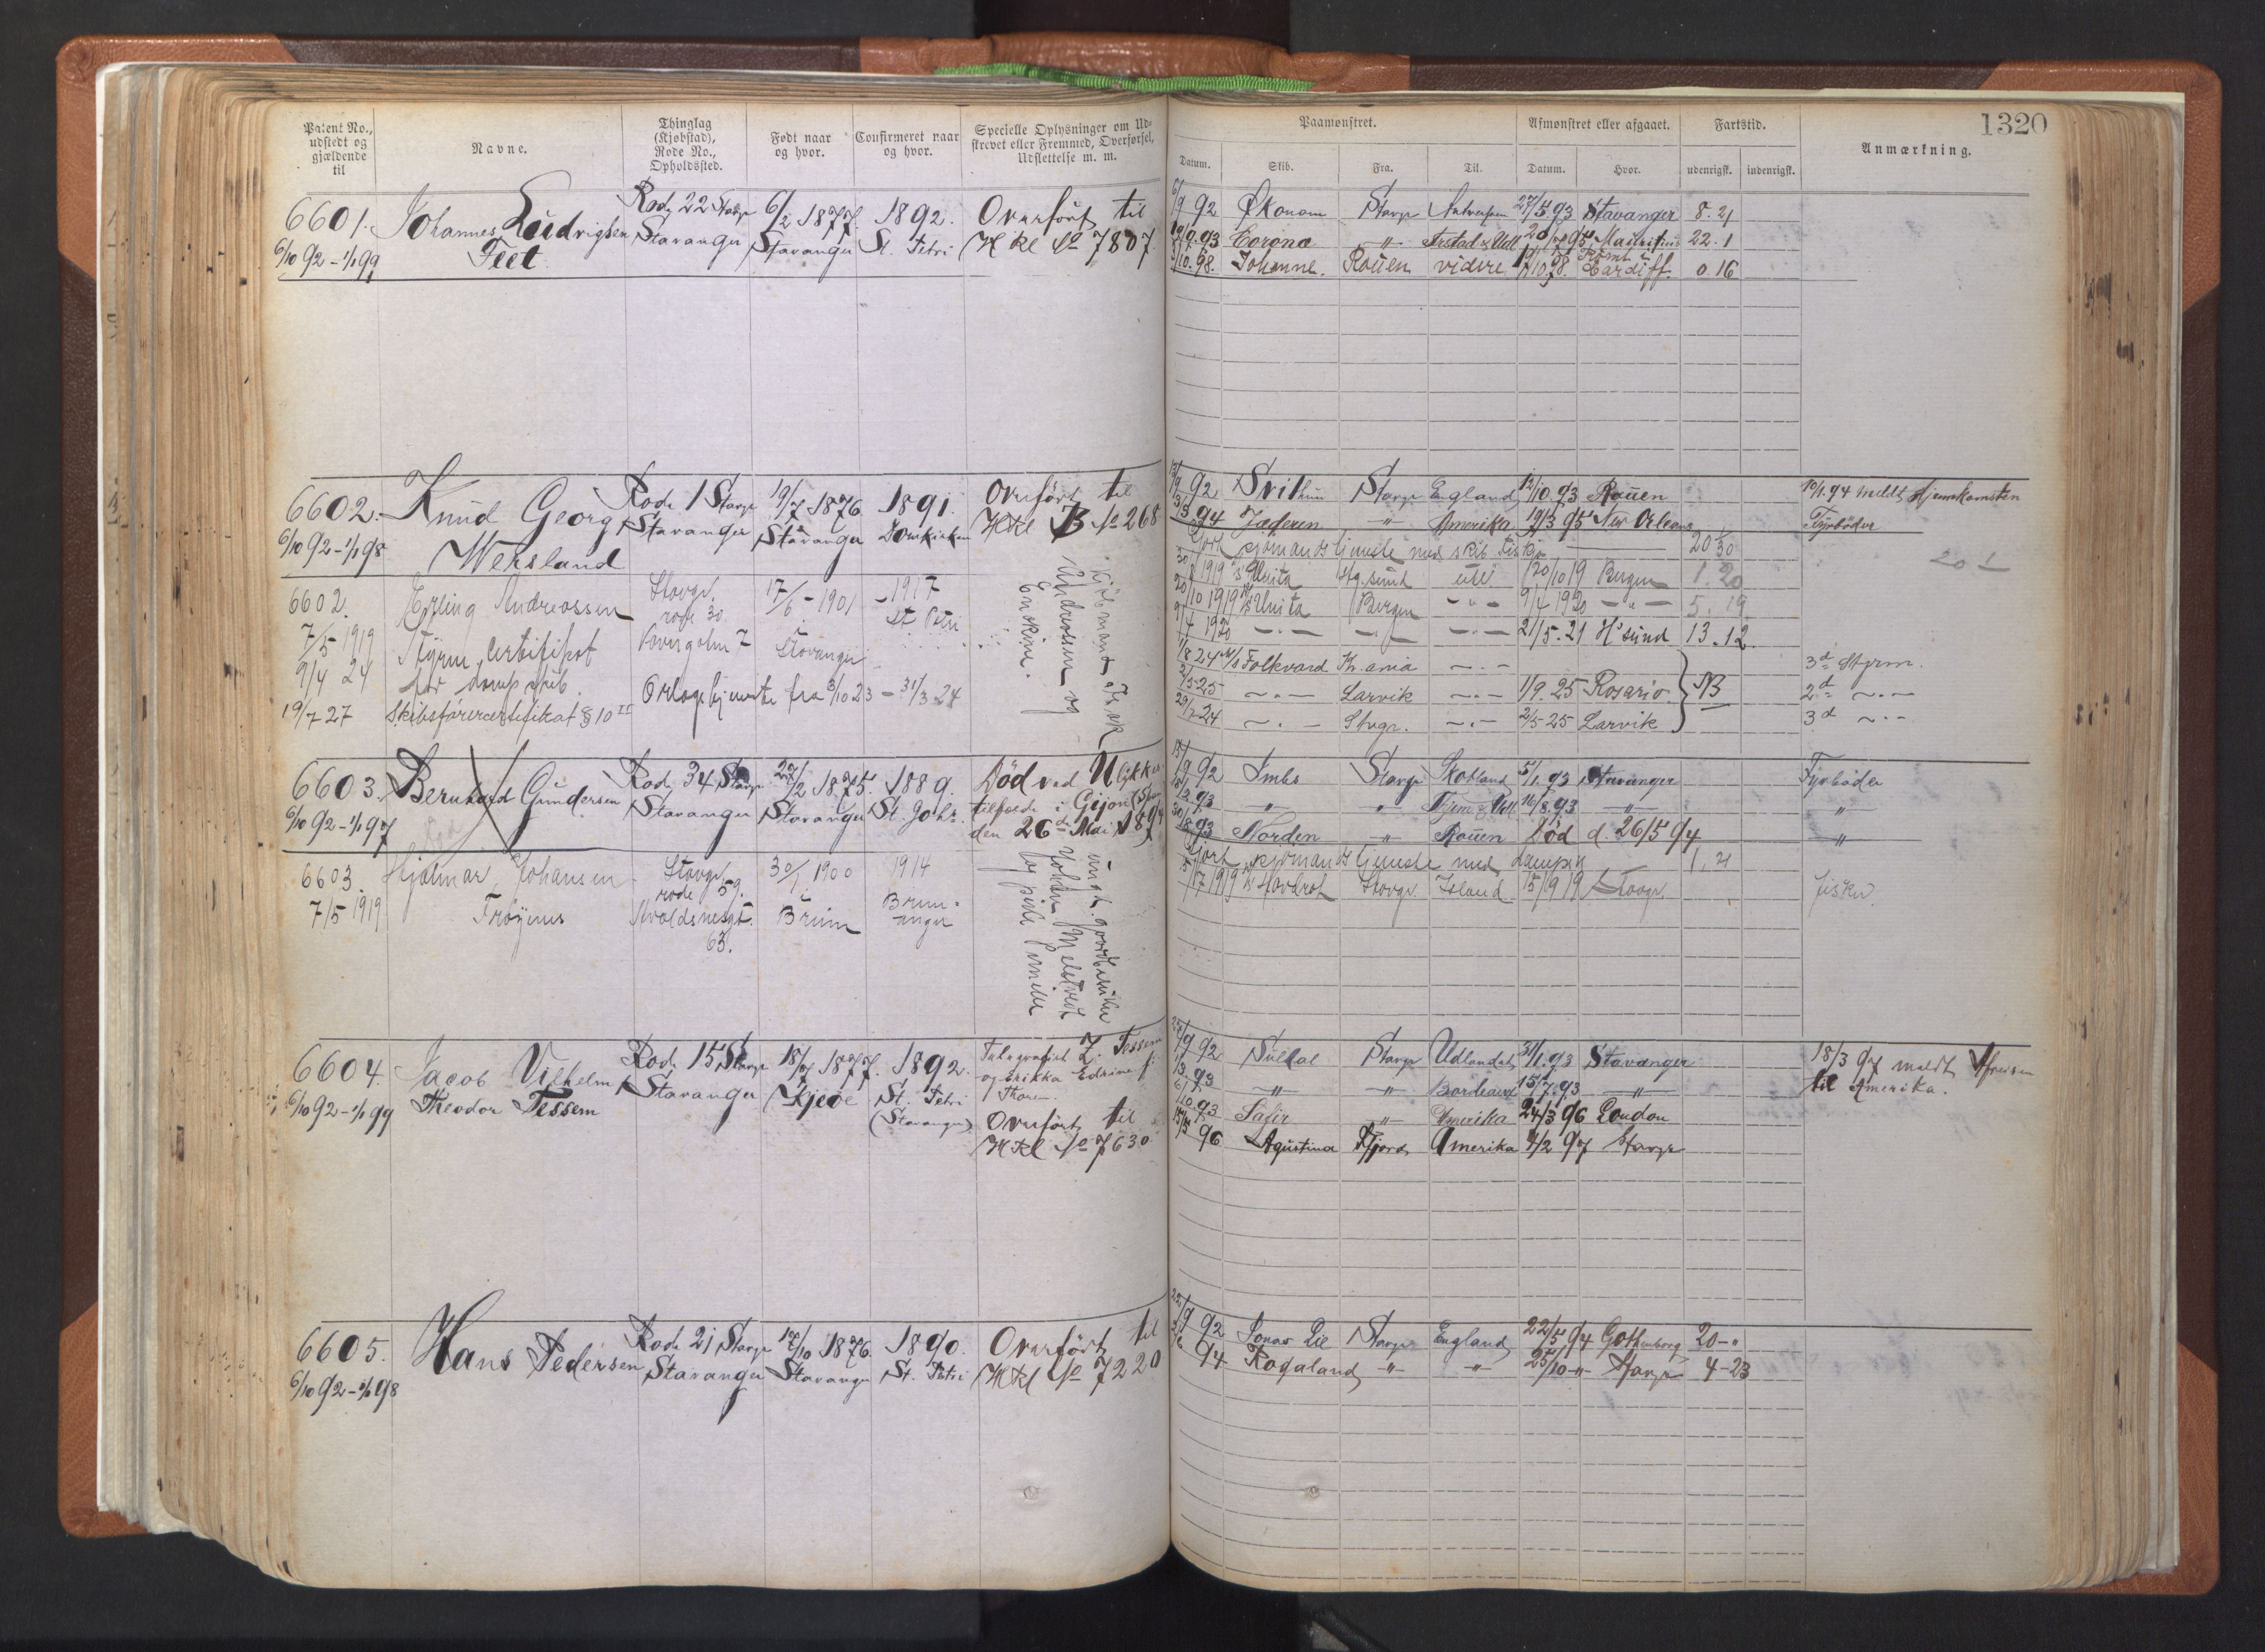 Patent No., udstedt og gjældende til
Navne.
Thinglag (Kjøbstad), Rode No., Opholdssted.
Født naar og hvor.
Confirmeret naar og hvor.
Specielle Oplysninger om Udskrevet eller Fremmed, Overførsel, Udslettelse m. m.
Paamønstret.
Afmønstret eller afgaaet.
Fartstid.
Anmærkning.
1320
Datum. Skib. Fra. Til. Datum. Hvor. udenrigsk. indenrigsk.
6601. Johannes Ludvigsen Rode 22 Stavgr 6/2 1877. 1892. Overført til
6/10 92 – 1/1 99 Feet Stavanger Stavanger St. Petri HRl No 7807
6/9 92 Økonom Stavgr Antwerpen 27/5 93 Stavanger 8. 21
93 Corona –"– 95 Mauritius 22. 1
10. 98. Johanne. Rouen videre 98. Cardiff. 0. 16
6602. Knud Georg Rode 1 Stavgr 19/7 1876 1891. Overført til
6/10 92 – 1/1 98 Wersland Stavanger Stavanger Domkirken HRl B No 268
92 Svithun Stavgr England 12/10. 93 Rouen 10/1. 94 meldt Hjemkomsten
94 Jæderen –"– Amerika 19/3 95 New Orleans Fyrbøder
6602. Erling Andreassen Stavgr. 17/6 – 1901 – 1917
7/5 1919 rode 30. St Petri
9/4 24 Styrm. certifikat Kvergholm 7 Stavanger
for dampskib. Orlogstjeneste fra 3/10 23 – 31/3 24
19/7 27 Skibsførercertifikat § 10 II
Andreassen og
Enokine.
Gjort sjømands tjeneste med skib 20 30
1919 Unita Hg.sund 20/10 19 Bergen 1. 20
20/10 1919 Unita Bergen –"– 9/4 1920 –"– 5. 19
9/4 1920 –"– –"– –"– 21/5. 21 H sund 13. 12
1/8 24 M/S Folkvard Kr.ania –"– 3d Styrm.
2/5 25 –"– Larvik –"– 1/9. 25 Rosario NB 2d –"–
–"– Stvgr. –"– 2/5 25 Larvik 3d –"–
6603. Bernhard Gundersen Rode 34 Stavgr 27/2 1875. 1889. Død ved Ulykkes
6/10 92 – 1/1 97 Stavanger Stavanger St. Johs. tilfælde i Gijon (Span
den 26de Mai 1894
92 Imbs Stavgr Skotland 5/1. 93 Stavanger Fyrbøder
93 " " 16/8. 93 –"– "
30/8 93 Norden –"– Rouen Død d. 26/5 94 –"–
6603. Hjalmar Johansen Stavgr. 30/1 1900 1914
7/5 1919 Frøynes rode 59.
63.
Johan
Gjort sjømands tjeneste med 1, 21
1919 Stavgr. Island 15/9 19 Stavgr. fisker
6604. Jacob Vilhelm Rode 15 Stavgr 18/7 1877. 1892. Telegrafist Z. Tessem
6/10 92 – 1/1 99 Theodor Tessem Stavanger St. Petri og Erikka Edvine f.
(Stavanger) Thorsen.
Overført til
HRl No 7630
92 Suldal Stavgr Udlandet 31/1. 93 Stavanger 18/3 97 meldt Afreisen
93 –"– –"– Bordeaux 15/7. 93 –"– til Amerika.
93 Safir –"– Amerika 24/3 96 London
96 Agustina Fjord Amerika 4/2 97 Stavgr
6605. Hans Pedersen Rode 21 Stavgr 1876. 1890. Overført til
6/10 92 – 1/1 98 Stavanger Stavanger St. Petri HRl No 7220
92 Jonas Lie Stavgr England 22/5 94 Gothenborg 20 – "
94 Rogaland –"– –"– 25/10 –"– Stavgr 4 – 23